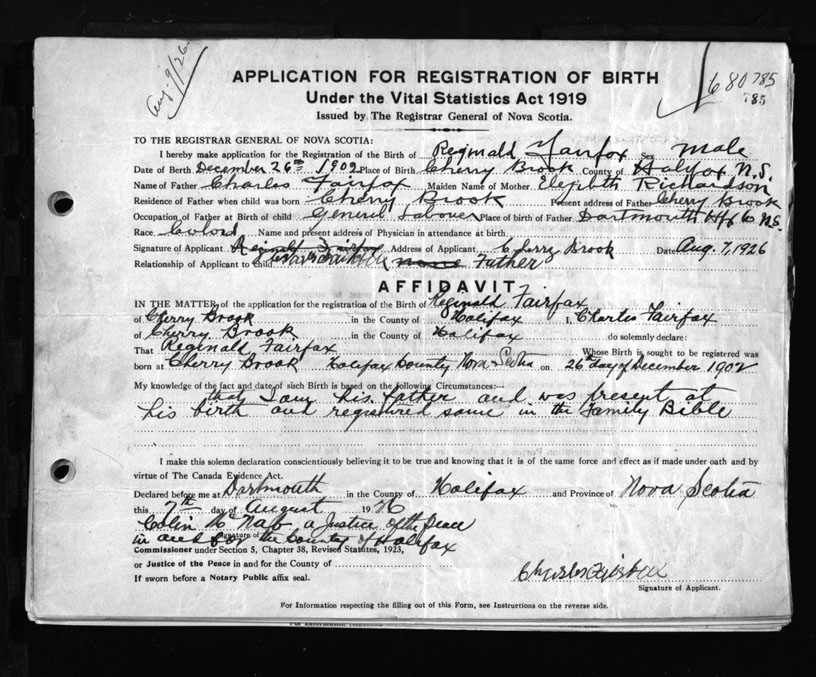 Aug. 9/26
680785
785
APPLICATION FOR REGISTRATION OF BIRTH
Under the Vital Statistics Act 1919
Issued by The Registrar General of Nova Scotia.
TO THE REGISTRAR GENERAL OF NOVA SCOTIA:
I hereby make application for the Registration of the Birth of Reginald Fairfox Sex Male
Date of Birth December 26th 1902 Place of Birth Cherry Brook County of Halifax N.S.
Name of Father Charles Fairfax Maiden Name of Mother Elezebth Richardson
Residence of Father when child was born Cherry Brook Present address of Father Cherry Brook
Occupation of Father at Birth of child General Labourer Place of birth of Father Dartmouth Hfx Co N.S.
Race Colord Name and present address of Physician in attendance at birth
Signature of Applicant Reginald Fairfax Address of Applicant Cherry Brook Date Aug 7, 1926
Relationship of Applicant to child none Father
AFFIDAVIT
IN THE MATTER of the application for the registration of the Birth of Reginald Fairfax
of Cherry Brook in the County of Halifax I, Charles Fairfax
of Cherry Brook in the County of Halifax do solemnly declare:
That Reginald Fairfax Whose Birth is sought to be registered was
born at Cherry Brook Halifax County Nova Scotia on 26th day of December 1902
My knowledge of the fact and date of such Birth is based on the following Circumstances:—
that I am his father and was present at
his birth and registured same in the Family Bible
I make this solemn declaration conscientiously believing it to be true and knowing that it is of the same force and effect as if made under oath and by
virtue of The Canada Evidence Act.
Declared before me at Dartmouth in the County of Halifax and Province of Nova Scotia
this 7th day of August 1926
Colin McNab a Justice of the Peace
Signature of
in and for the County of Halifax
Commissioner under Section 5, Chapter 38, Revised Statutes, 1923,
or Justice of the Peace in and for the County of
If sworn before a Notary Public affix seal.
Charles Fairfax
Signature of Applicant.
For Information respecting the filling out of this Form, see Instructions on the reverse side.